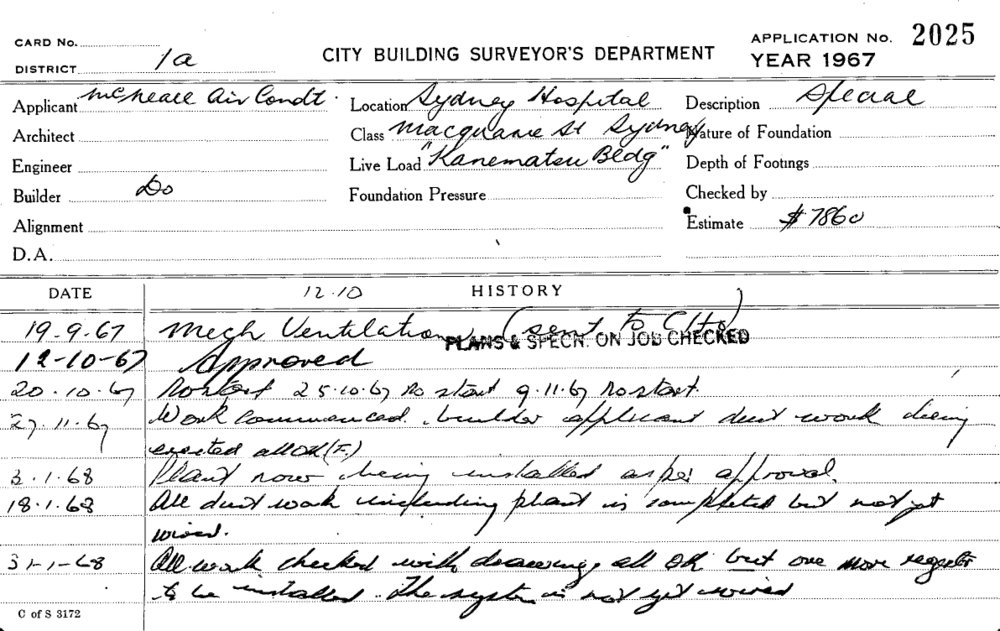 CARD No.
DISTRICT 1a
CITY BUILDING SURVEYOR'S DEPARTMENT
APPLICATION No. 2025
YEAR 1967
Applicant McNeall Air Condt.
Location Sydney Hospital
Description Special
Architect
Class Macquarie St Sydney
Nature of Foundation
Engineer
Live Load "Kanematsu Bldg"
Depth of Footings
Builder Do
Foundation Pressure
Checked by
Alignment
Estimate $7860
D.A.
DATE
12.10
HISTORY
19.9.67 Mech Ventilation (sent to C/Ho)
PLANS & SPECN. ON JOB CHECKED
12-10-67 Approved
20.10.67 No start 25.10.67 No start 9.11.67 No start.
27.11.67 Work commenced. builder applicant duct work being
erected all OK (F.)
3.1.68 Plant now being installed as per approval.
18.1.68 All duct work including plant is completed but not yet
wired.
31-1-68 All work checked with drawings all OK but one more register
to be installed. The system is not yet wired
C of S 3172